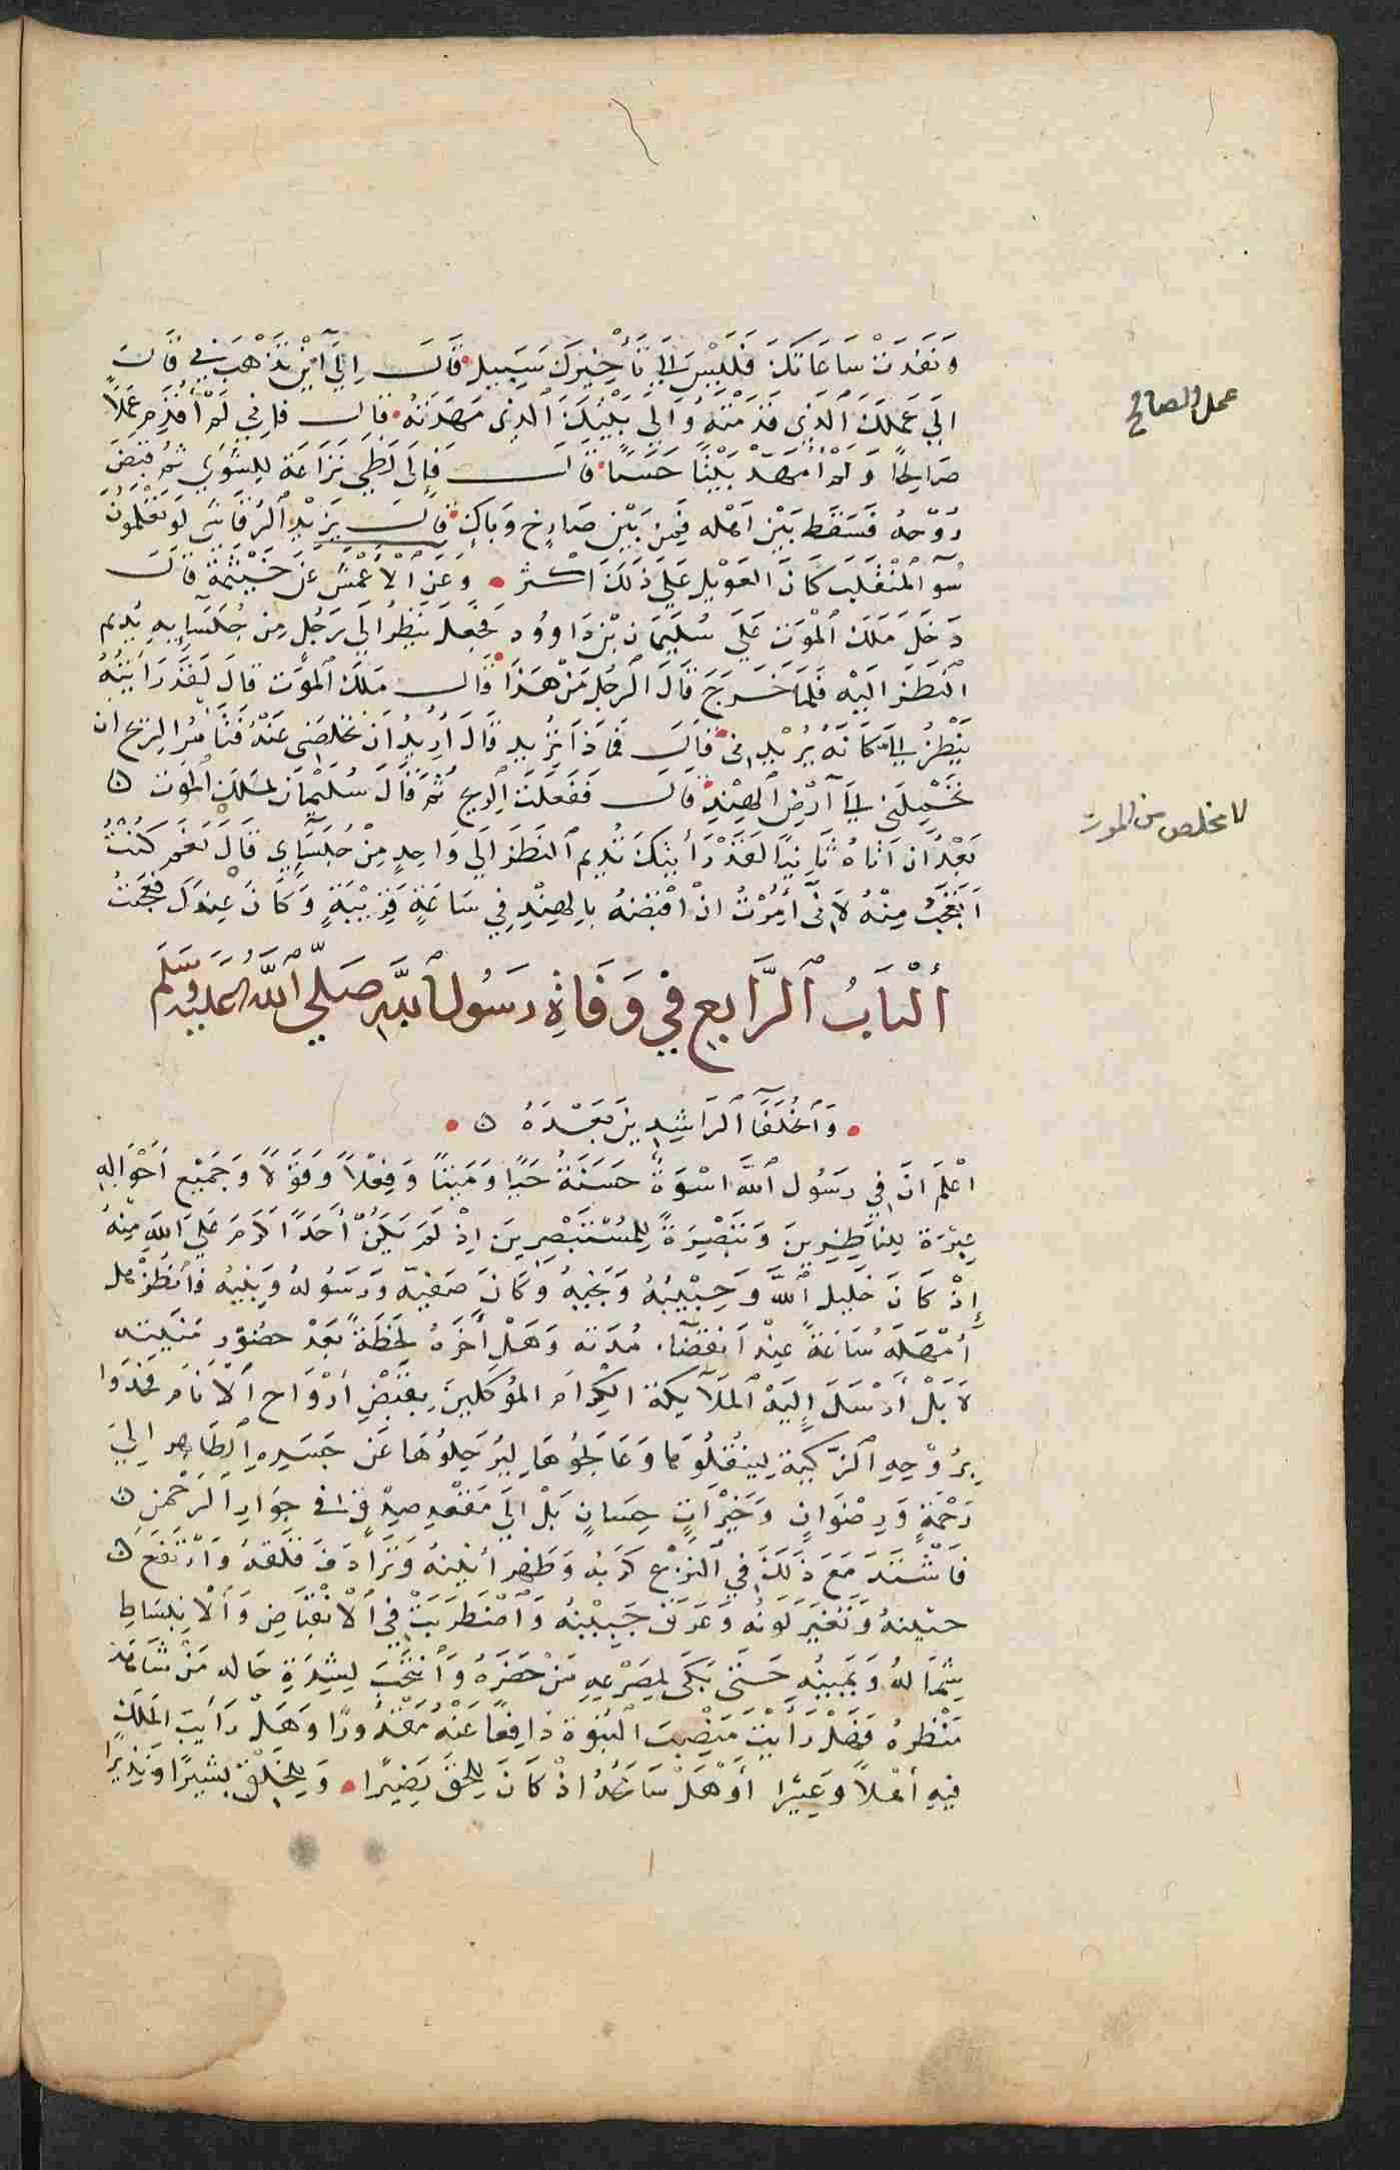 وَنَفَدَتْ سَاعَاتُكَ فَلَيْسَ اِلَى تَأْخِيْرِكَ سَبِيل قَالَ اِلَى اَيْنَ تَذْهَبُ بِي قَالَ
اِلَى عَمَلِكَ الَّذِى قَدَّمْتَهُ وَاِلَى بَيْتِكَ الَّذِى مَهَدْتَهُ قَالَ فَاِنِّي لَمْ اُقَدِّمْ عَمَلًا
صَالِحًا وَلَمْ اُمَهِّدْ بَيْتًا حَسَنًا قَالَ فَاِلَى لَظَى نَزَّاعَةً لِلشَّوَى ثُمَّ قَبَضَ
رُوْحَهُ فَسَقَطَ بَيْنَ اَهْلِه فَمِنْ بَيْنِ صَارِخٍ وَبَاكٍ قَالَ يَزِيْد الرَّقَاشِى لَوْ تَعْلَمُونَ
سُوءَ الْمُنْقَلَبِ كَانَ الْعَوِيْل عَلَى ذَلِكَ اَكْثَر وَعَنِ الْاَعْمَشِ عَنْ خَيْثَمَةَ قَالَ
دَخَلَ مَلَكُ الْمَوْتِ عَلَى سُلَيْمَان بْنِ دَاووُد فَجَعَلَ يَنْظُرُ اِلَى رَجُلٍ مِنْ جُلَسَائِهِ يُدِيم
النَّظَرَ اِلَيْهِ فَلَمَّا خَرَجَ قَالَ الرَّجُلُ مَنْ هَذَا قَالَ مَلَكُ الْمَوْتِ قَالَ لَقَدْ رَاَيْتُهُ
يَنْظُرُ اِلَيَّ كَاَنَّهُ يُرِيْدُنِى قَالَ فَمَاذَا تُرِيد قَالَ اُرِيْدُ اَنْ تُخَلِّصَنِى مِنْهُ فَتَاْمُرُ الرِّيْحَ ان
تَحْمِلَنِى اِلَى اَرْضِ الْهِنْدِ قَالَ فَفَعَلَتِ الرِّيحُ ثُمَّ قَالَ سُلَيْمَان لِمَلَكِ الْمَوْت
بَعْدَ اَن اَتَاهُ ثَانِيًا لَقَدْ رَاَيْتُكَ تُدِيم النَّظَرَ اِلَى وَاحِدٍ مِنْ جُلَسَائِى قَالَ نَعَمْ كُنْتُ
اَتَعَجَّبُ مِنْهُ لِاَنِّى اُمِرْتُ اَنْ اَقْبِضَهُ بِالْهِنْدِ فِي سَاعَةٍ قَرِيْبَةٍ وَكَانَ عِنْدَكَ فَعَجِبْتُ
اَلْبَابُ الرَّابِع فِي وَفَاةِ رَسُولِ اللَّهِ صَلَّى اللَّهُ عَلَيْهِ وَسَلَّم
وَالْخُلَفَاءِ الرَّاشِدِيْنَ بَعْدَهُ
اعْلَمْ اَنَّ فِي رَسُول اللَّهِ اسْوَةً حَسَنَةً حَيًّا وَمَيِّتًا وَفِعْلًا وَقَوْلًا وَجَمِيْع اَحْوَالِهِ
عِبْرَة لِلنَّاظِرِيْنَ وَتَبْصِرَةً لِلْمُسْتَبْصِرِيْنَ اِذْ لَمْ يَكُنْ اَحَدًا اَكْرَمَ عَلَى اللَّهِ مِنْهُ
اِذْ كَانَ خَلِيلَ اللَّهِ وَحَبِيْبُهُ وَنَجِيُّهُ وَكَانَ صَفِيّه وَرَسُولهُ وَنَبِيّهُ فَانْظُرْ هَل
اُمْهِلَهُ سَاعَةً عِنْدَ اَنْقِضَاءِ مُدَّتِه وَهَلْ اَخَّرَهُ لَحْظَةً بَعْدَ حُضُوْر مَنِيَّتِه
لَا بَلْ اَرْسَلَ اِلَيْهِ الْمَلَآئِكَة الْكِرَام المُوَكَّلِيْنَ بِقَبْضِ اَرْوَاح الْاَنَامِ فَجَدُّوا
بِرُوْحِهِ الزَّكِيّة لِيَنْقُلُوهَا وَعَالَجُوهَا لِيُرَحِّلُوْهَا عَنْ جَسَدِهِ الطَّاهِرِ اِلَى
رَحْمَةٍ وَرِضْوَانٍ وَخَيْرَاتٍ حِسَانٍ بَلْ اِلَى مَقْعَدِ صِدْقٍ فِى جِوَارِ الرَّحْمَنِ
فَاشْتَدَّ مَعَ ذَلِكَ فِي النَّزْع كَرْبُهُ وَظَهَرَ اَنِيْنهُ وَتَرَادَفَ قَلَقهُ وَارْتَفَعَ
حَنِيْنهُ وَتَغَيَّرَ لَوْنُه وَعَرِقَ جَبِيْنهُ وَاضْطَرَبَتْ فِي الْاِنْقِبَاضِ وَالْاِنْبِسَاطِ
شِمَالهُ وَيَمِيْنُه حَتَّى بَكَى لِمَصْرَعِهِ مَنْ حَضَرَهُ وَانْتَحَبَ لِشِدَّةِ حَالِه مَنْ شَاهَدَ
مَنْظَرهُ فَهَلْ رَاَيْتَ مَنْصِبَ النُّبُوَّة دَافِعًا عَنْهُ مَقْدُورًا وَهَلْ رَاَيْتَ المَلَك
فِيْهِ اَهْلًا وَعَشِيْرًا اَوْ هَلْ سَامَحَهُ اذْ كَانَ لِلْحَقِّ نَصِيْرًا وَلِلْخَلْقِ بَشِيْرًا وَنَذِيْرًا
عمل الصالح
لا مخلص من الموت